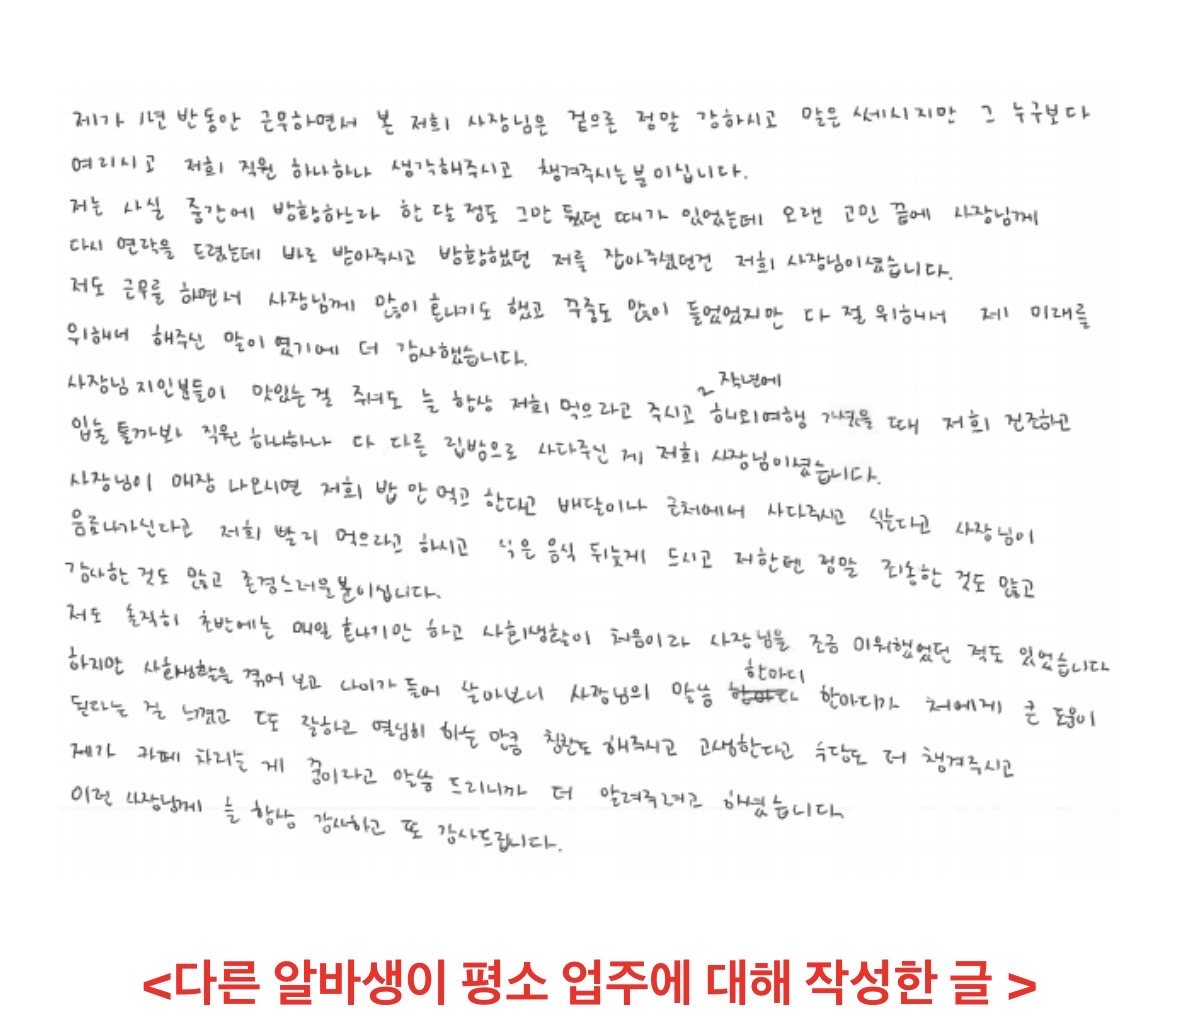 제가 1년 반 동안 근무하면서 본 저희 사장님은 겉으론 정말 강하시고 말은 쎄시지만 그 누구보다
여리시고 저희 직원 하나하나 생각해주시고 챙겨주시는분이십니다.
저는 사실 중간에 방황하느라 한 달 정도 그만 뒀던 때가 있었는데 오랜 고민 끝에 사장님께
다시 연락을 드렸는데 바로 받아주시고 방황했던 저를 잡아주셨던건 저희 사장님이셨습니다.
저도 근무를 하면서 사장님께 많이 혼나기도 했고 꾸중도 많이 들었었지만 다 절 위해서 제 미래를
위해서 해주신 말이였기에 더 감사했습니다.
사장님 지인분들이 맛있는걸 줘도 늘 항상 저희 먹으라고 주시고 작년에 해외여행 가셨을 때 저희 건조하고
입술 틀까봐 직원 하나하나 다 다른 립밤으로 사다주신 게 저희 사장님이셨습니다.
사장님이 매장 나오시면 저희 밥 안 먹고 한다고 배달이나 근처에서 사다주시고 식는다고 사장님이
음료나가신다고 저희 빨리 먹으라고 하시고 식은 음식 뒤늦게 드시고 저한텐 정말 죄송한 것도 많고
감사한 것도 많고 존경스러운분이십니다.
저도 솔직히 초반에는 매일 혼나기만 하고 사회생활이 처음이라 사장님을 조금 미워했었던 적도 있었습니다
하지만 사회생활을 겪어 보고 나이가 들어 살아보니 사장님의 말씀 한마디 한마디가 저에게 큰 도움이
된다는 걸 느꼈고 또 잘하고 열심히 하는 만큼 칭찬도 해주시고 고생한다고 수당도 더 챙겨주시고
제가 카페 차리는 게 꿈이라고 말씀 드리니까 더 알려주려고 하셨습니다.
이런 사장님께 늘 항상 감사하고 또 감사드립니다.
<다른 알바생이 평소 업주에 대해 작성한 글 >